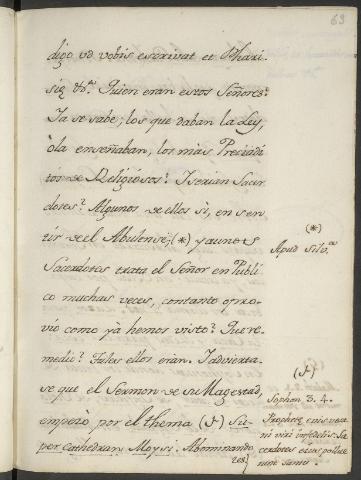 63
digo vd vobis escrivat et Phari-
sių &rª Quien eran estos Señores?
Ya se sabe; los que daban la Ley,
ôla enseñaban, los màs Preciadi
tos de Religiosos? Y serian Sacer
dotes? Algunos de ellos si, en sen
tir de el Abulense; (*) y aunots
Sacerdotes trata el Señor en Publi
co muchas veces, contanto opro-
vio como yà hemos visto? Que re-
medio? Tales ellos eran. Y advierta-
se que el Sermon de su Magestad,
empezò por el thema (†) Su-
per Cathedram Moysi. Abominando
(*)
Apud Silvª
(†)
Sophon. 3. 4.
Prophetę eius vesa
ni viri infideles: Sa
cerdotes eius pollue
runt sanct